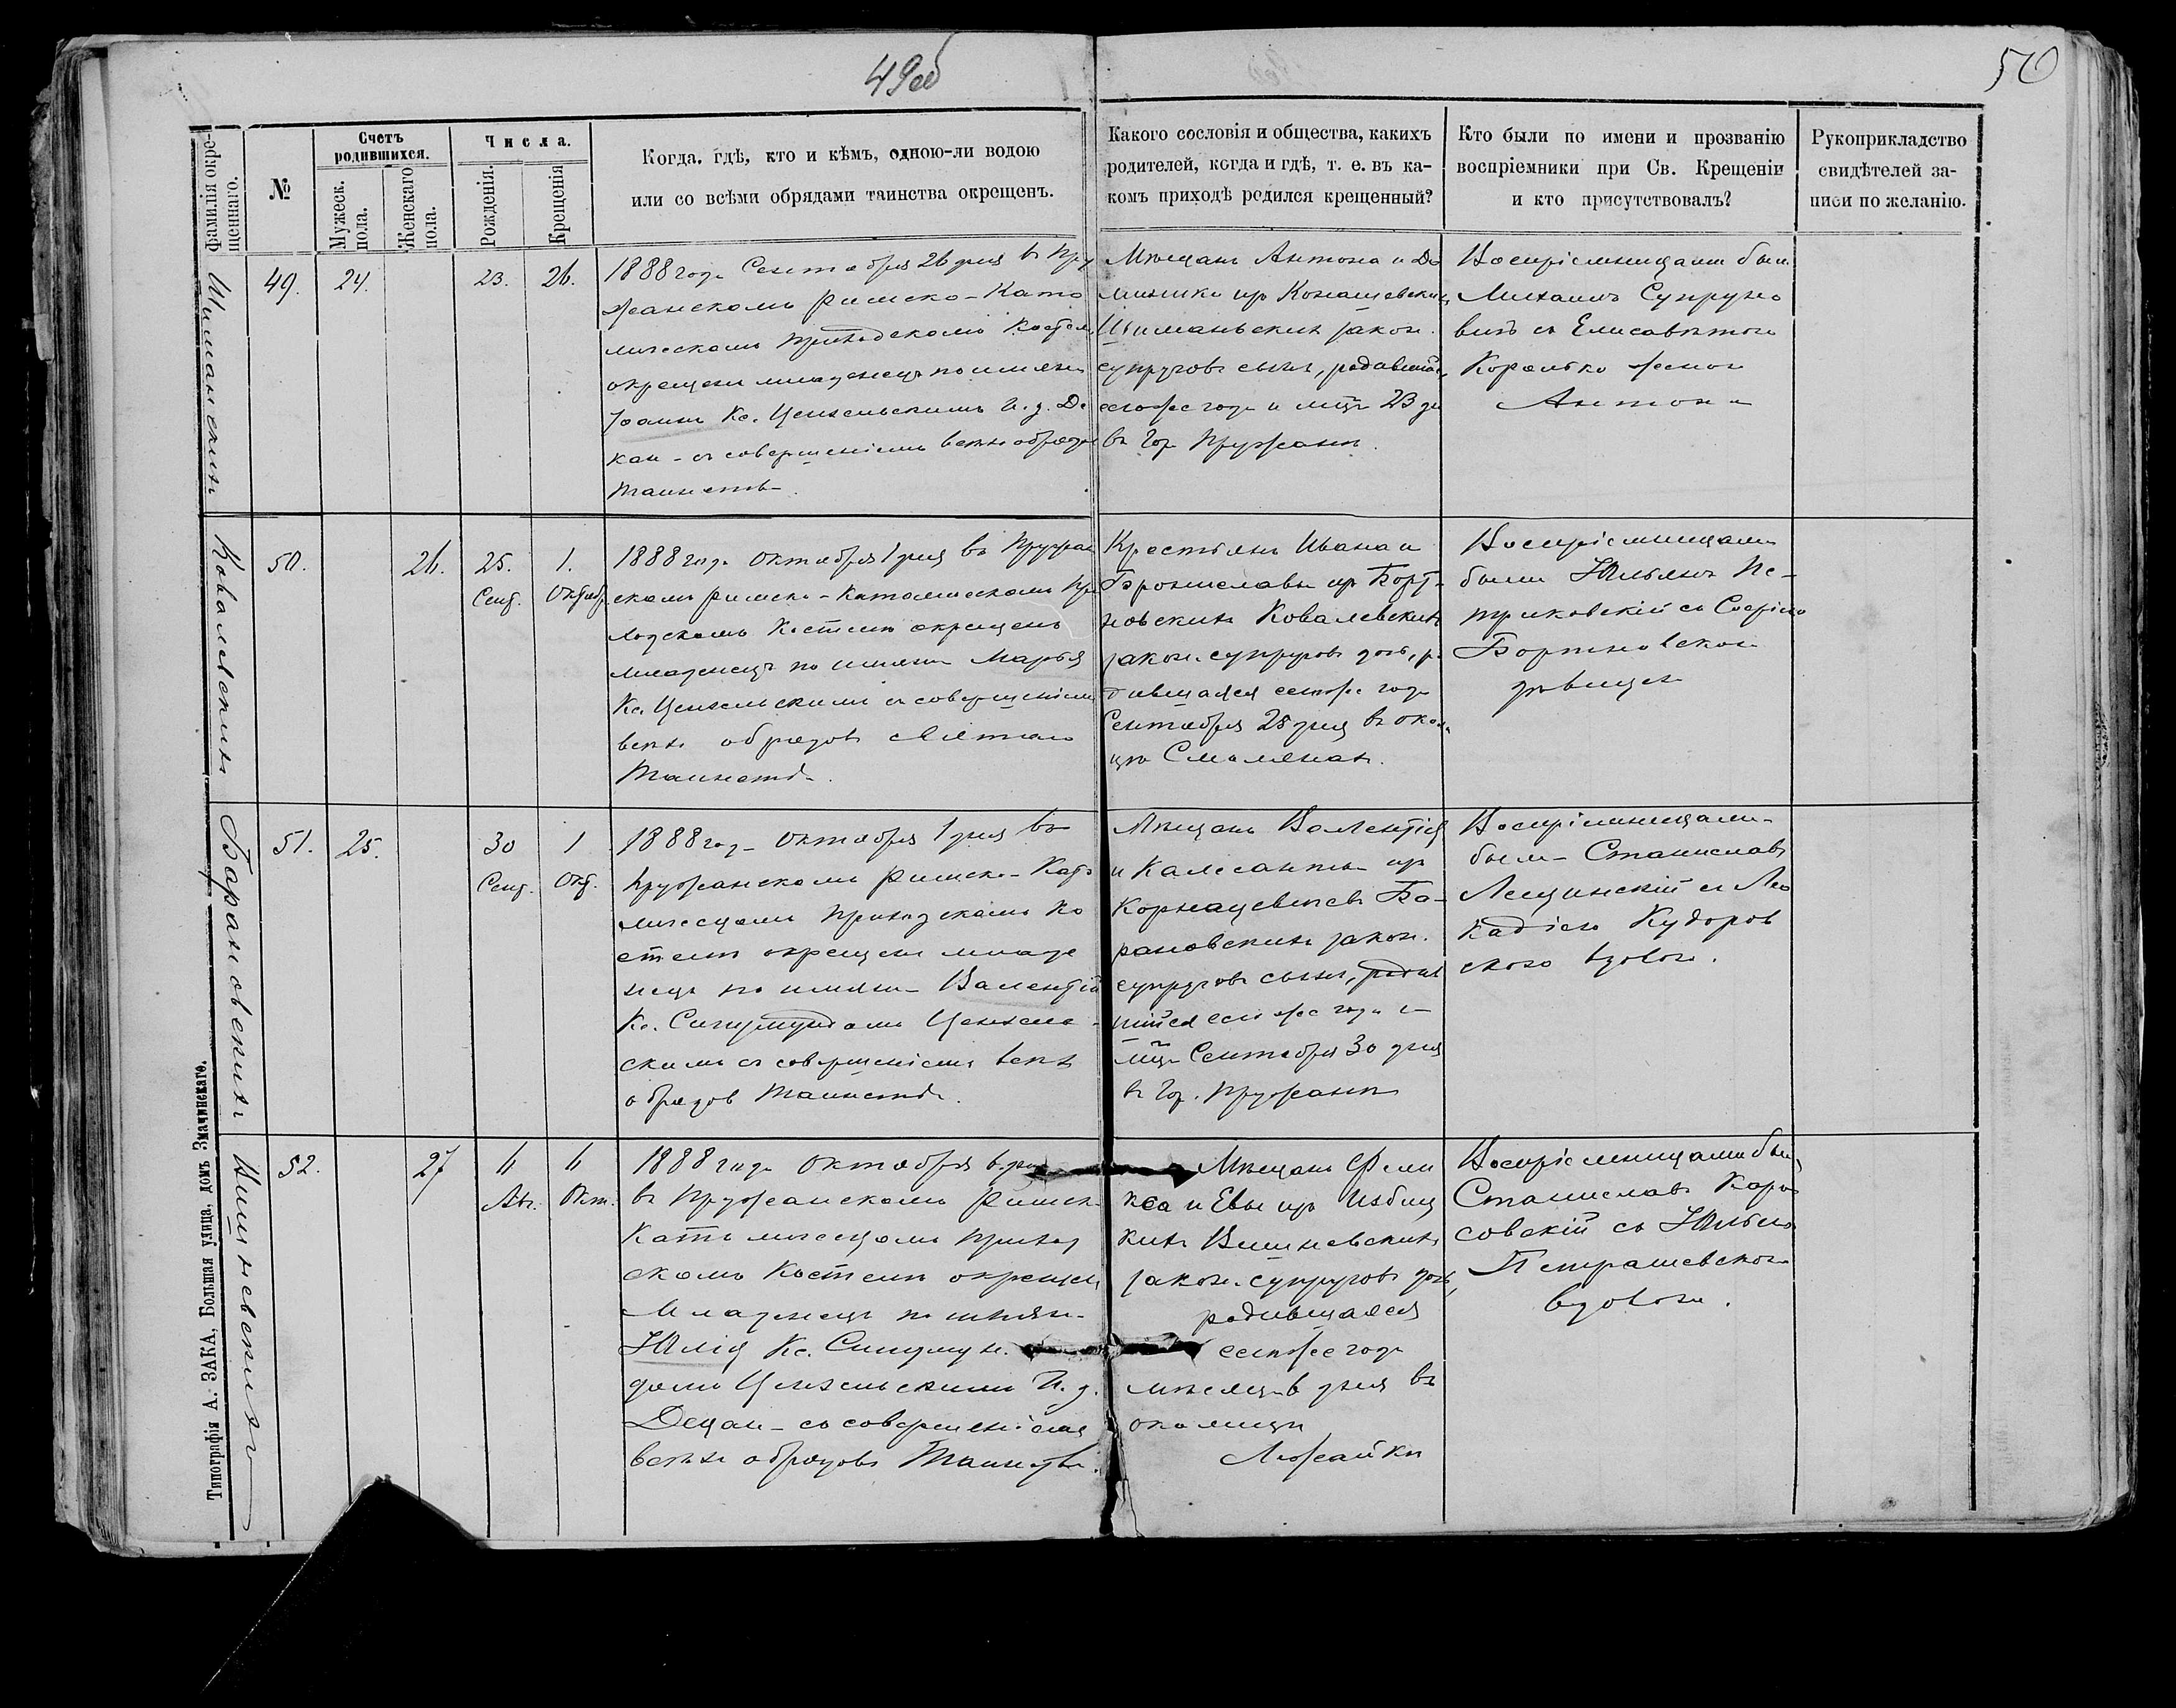 49 об
50
Фамилія окре-
щеннаго.
№
Счетъ
родившихся.
Мужеск.
пола.
Женскаго
пола.
Числа.
Рожденія.
Крещенія
Когда, гдѣ, кто и кѣмъ, одною-ли водою
или со всѣми обрядами таинства окрещенъ.
Какого сословія и общества, какихъ
родителей, когда и гдѣ, т. е. въ ка-
комъ приходѣ родился крещенный?
Кто были по имени и прозванію
воспріемники при Св. Крещеніи
и кто присутствовалъ?
Рукоприкладство
свидѣтелей за-
писи по желанію.
49.
24.
23.
26.
1888 года Сентября 26 дня въ Пру
жанскомъ Римско-Като
лическомъ Приходскомъ Костел
окрещенъ младенецъ по имени
Іоаннъ Кс. И. д. Де
кан - съ совершеніемъ всѣхъ обрядов
Таинств.
Мѣщанъ Антона и До
миники изъ
закон.
супруговъ сынъ, родившійся
сегоже года и мца 23 дн
въ гор. Пружанѣ.
Воспріемниками были
Михаилъ Супруно
вичъ съ Елисаветою
Королько женою
Антона
Ковалевскихъ
50.
26.
25.
Сент.
1.
Октябр.
1888 года Октября 1 дня въ Пружан
скомъ Римско-Католическомъ При
ходскомъ Костелѣ окрещенъ
младенецъ по имени Марья
Кс. съ совершеніемъ
всѣхъ обрядовъ
Таинств.
Крестьянъ Ивана и
Брониславы изъ Борт-
новскихъ Ковалевскихъ
закон. супруговъ дочь, ро
дившаяся сегоже года
Сентября 25 дня въ окол.
Смолянах.
Воспріемниками
были Юльянъ Пе-
триковскій съ Софіею
Бортновскою
дѣвицею
Барановскихъ
51.
25.
30
Сент.
1
Окт.
1888 год Октября 1 дня въ
Пружанскомъ Римско-Като
лическомъ Приходскомъ Ко
стелѣ окрещенъ младе
нецъ по имени Валентій
Кс. Сигизмундомъ
скимъ съ совершеніемъ всѣхъ
обрядов Таинств.
Мѣщанъ Валентія
и изъ
Ба-
рановскихъ закон.
супруговъ сынъ, родив
шійся сегоже года и
мца Сентября 30 дня
въ гор. Пружанѣ
Воспріемниками
были Станиславъ
Лещинскій съ Лео
кадіею Кудоров
скою вдовою.
Вишневскихъ
52.
27
6
6
Окт.
1888 года Октября 6 дня
въ Пружанскомъ Римск-
Католическомъ Приход
скомъ Костелѣ окрещен
Младенецъ по имени
Юлія Кс. Сигизмун-
домъ И. д.
Декан - съ совершеніемъ
всѣхъ обрядовъ Таинства.
Мѣщанъ Фели
кса и Евы изъ Избиц
кихъ Вишневскихъ
закон. супруговъ дочь,
родившаяся
сегоже года
мѣсяца 6 дня въ
околицѣ
Лежайки
Воспріемниками были
Станиславъ Каро
совскій съ Юльею
Петрашевскою
вдовою.
Типографія А. ЗАКА, Большая улица, домъ Змачинскаго.